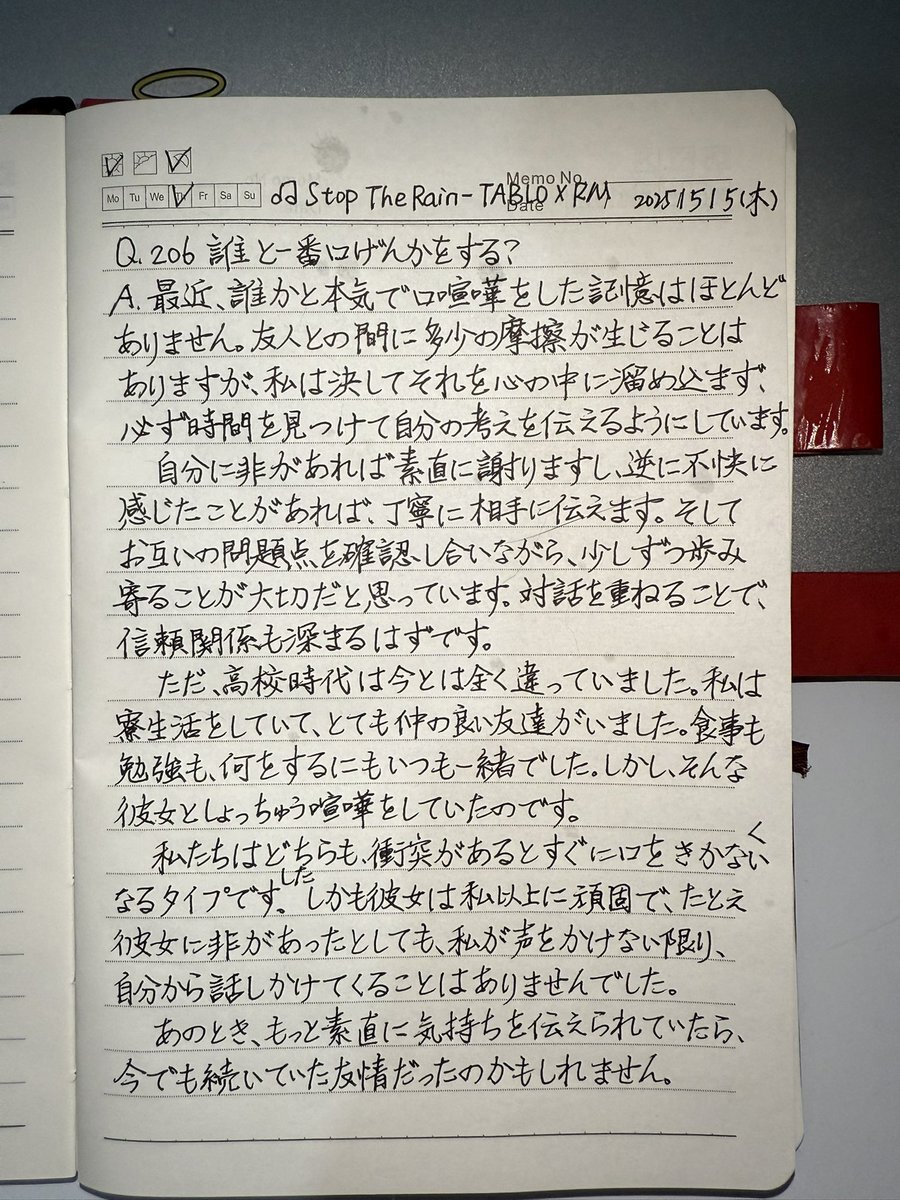 Memo No.
Mo Tu We Th Fr Sa Su
Date
♫ Stop The Rain - TABLO X RM 2025/5/15(木)
Q.206 誰と一番口げんかをする?
A.最近、誰かと本気で口喧嘩をした記憶はほとんど
ありません。友人との間に多少の摩擦が生じることは
ありますが、私は決してそれを心の中に溜め込まず、
必ず時間を見つけて自分の考えを伝えるようにしています。
自分に非があれば素直に謝りますし、逆に不快に
感じたことがあれば、丁寧に相手に伝えます。そして
お互いの問題点を確認し合いながら、少しずつ歩み
寄ることが大切だと思っています。対話を重ねることで、
信頼関係も深まるはずです。
ただ、高校時代は今とは全く違っていました。私は
寮生活をしていて、とても仲の良い友達がいました。食事も
勉強も、何をするにもいつも一緒でした。しかし、そんな
彼女としょっちゅう喧嘩をしていたのです。
私たちはどちらも、衝突があるとすぐに口をきかないく
なるタイプです。した しかも彼女は私以上に頑固で、たとえ
彼女に非があったとしても、私が声をかけない限り、
自分から話しかけてくることはありませんでした。
あのとき、もっと素直に気持ちを伝えられていたら、
今でも続いていた友情だったのかもしれません。